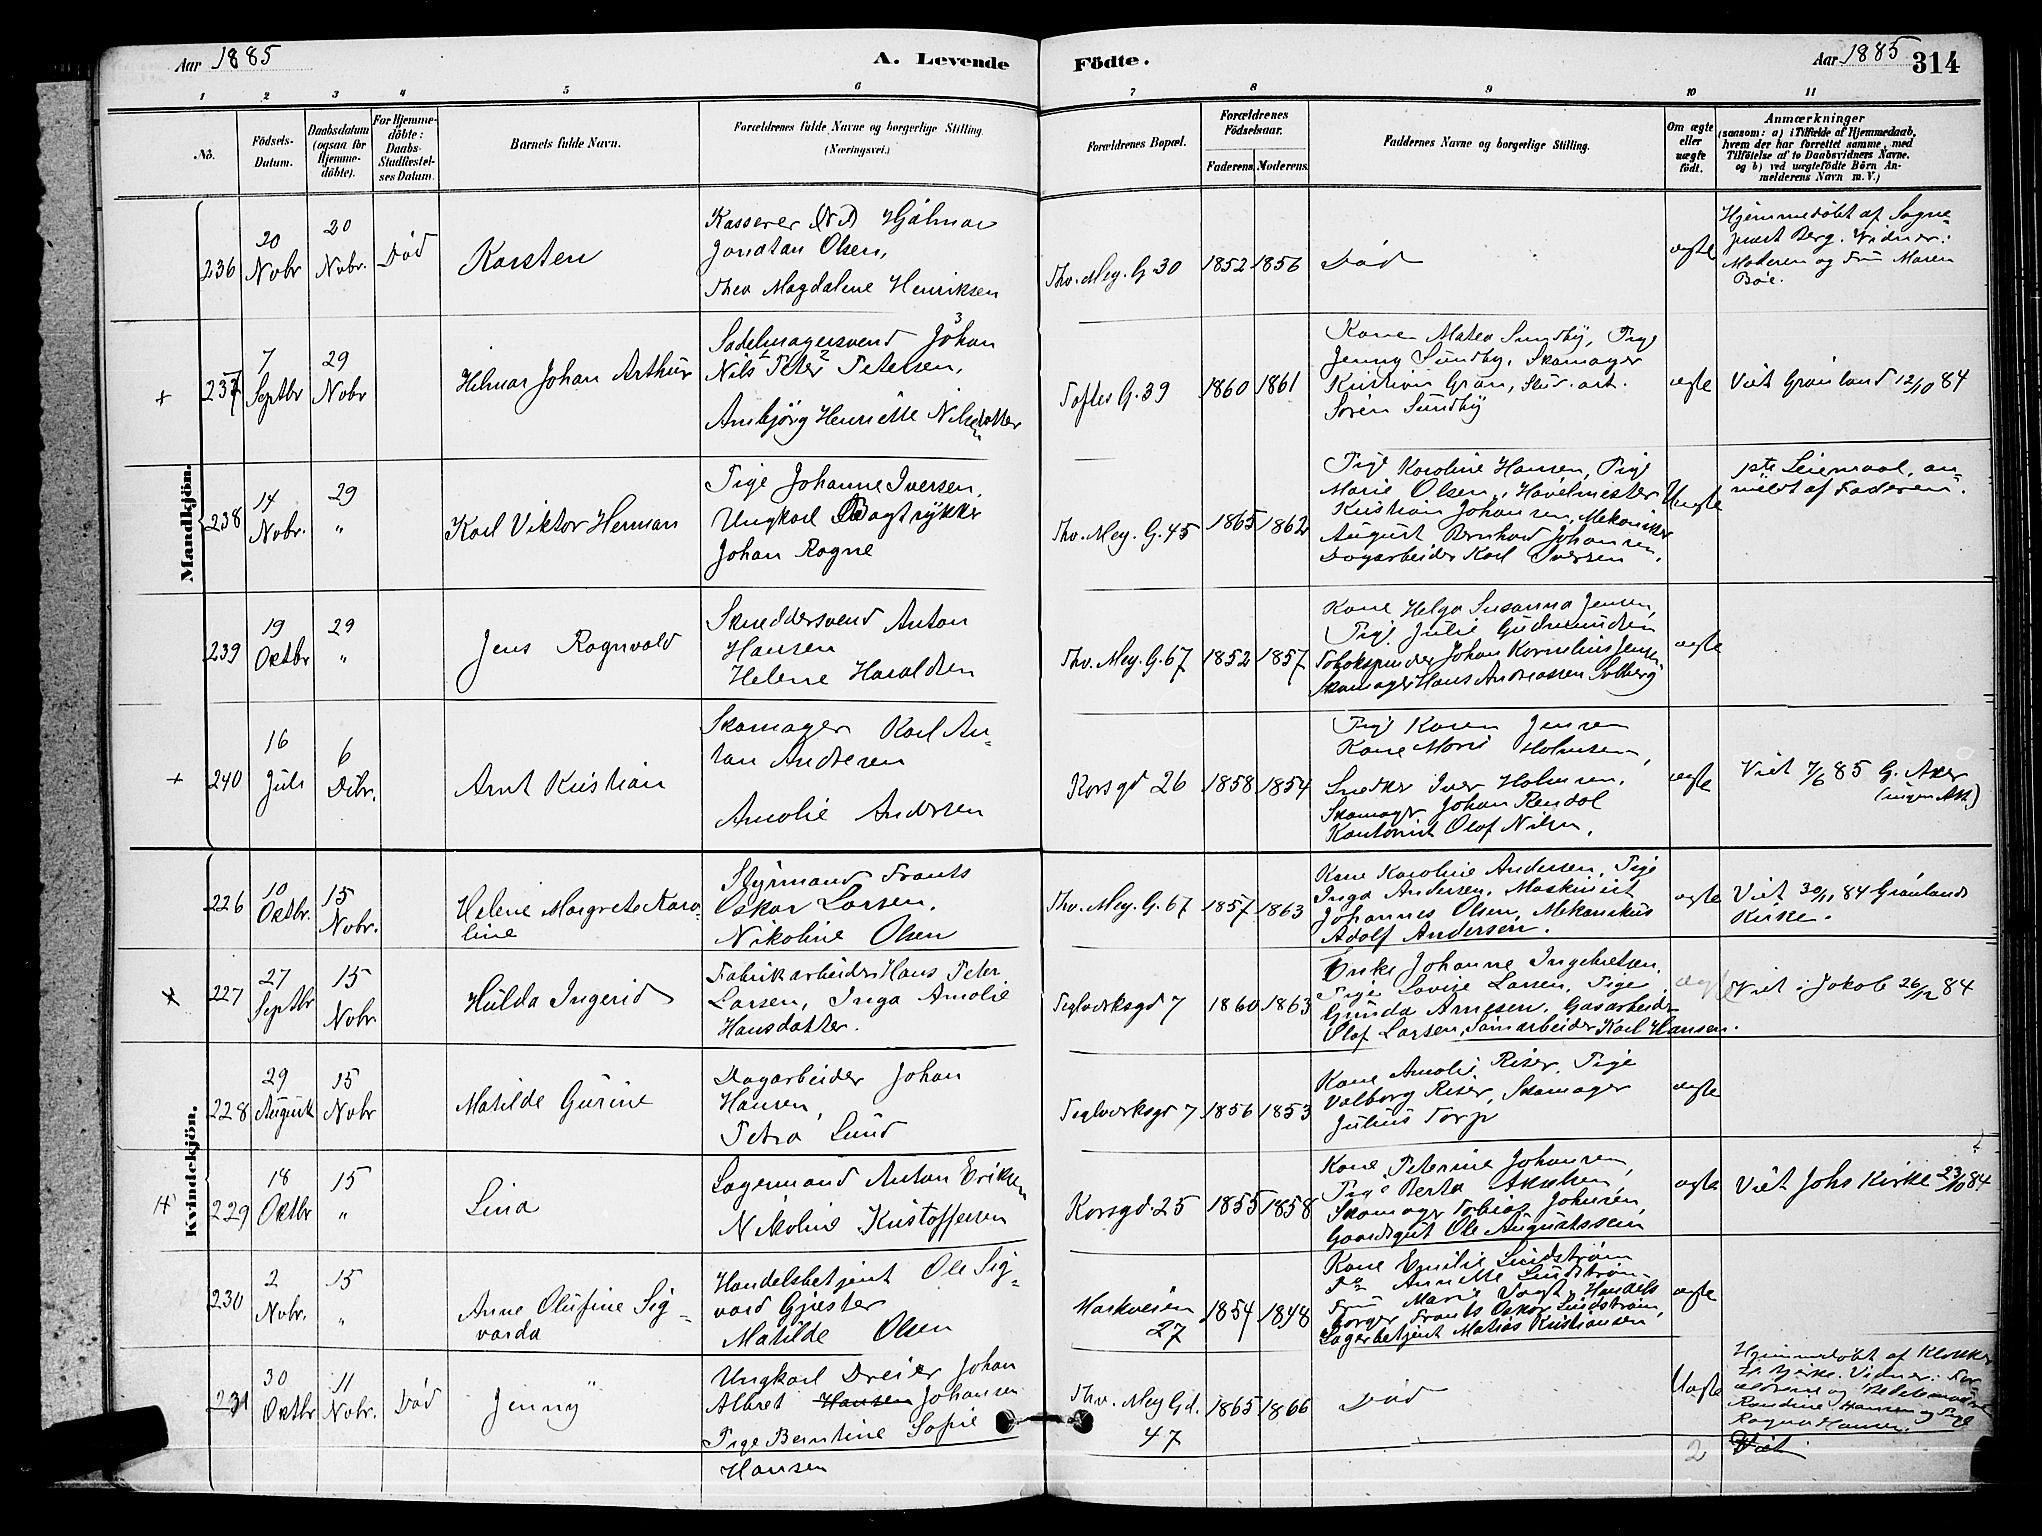 Aar 1885
A. Levende
Födte.
Aar 1885
314
1 2 3 4 5 6 7 8 9 10 11
No.
Födsels-Datum.
Daabsdatum (ogsaa for Hjemmedöbte).
For Hjemmedöbte: Daabs-Stadfæstelses Datum.
Barnets fulde Navn.
Forældrenes fulde Navne og borgerlige Stilling (Næringsvei.)
Forældrenes Bopæl.
Forældrenes Födselsaar.
Faderens. Moderens.
Faddernes Navne og borgerlige Stilling.
Om ægte eller uægte födt.
Anmærkninger
(saasom: a) i Tilfælde af Hjemmedaab, hvem der har forrettet samme, med Tilföielse af to Daabsvidners Navne, og b) ved uægtefödte Börn Anmelderens Navn m. V.)
Mandkjön.
236
20 Nobr
20 Nobr.
Död
Karsten
Kasserer Hjalmar
Jonatan Olsen,
Thea Magdalene Henriksen
Thv. Mey. G. 30
1852 1856
Död
ægte
Hjemmedöbt af Sogne-
præst Berg. Vidner:
Moderen og Fru Maren
Böe.
237
7 Septbr
29 Nobr
Helmar Johan Arthur
Sadelmagersvend Johan
Nils Peter Petersen,
Anbjörg Henriette Nilsdatter
Toftes G. 39
1860 1861
Kone Matea Sundby, Pige
Jenny Sundby, Skomager
Kristian Gran,
Sören Sundby
ægte
Viet Grönland 12/10 84
238
14 Nobr.
29 "
Karl Viktor Herman
Pige Johanne Iversen,
Ungkarl Bogtrykker
Johan Rogne
Thv. Mey. G. 45
1865 1862
Pige Karoline Hansen, Pige
Marie Olsen, Hövelmester
Kristian Johansen, Mekaniker
August Bernhard Johansen,
Dagarbeider Karl Iversen.
Uægte
1ste Leiermaal, an-
meldt af Faderen.
239
19 Oktbr
29 "
Jens Ragnvald
Skreddersvend Anton
Hansen
Helene Haraldsen
Thv. Mey. G. 67
1852 1857
Kone Helga Susanna Jensen,
Pige Julie Gudmundsen
Tobakspinder Johan Kornelius Jensen
Skomager Hans Andreassen Solberg
ægte
240
16 Juli
6 Debr.
Arnt Kristian
Skomager Karl An-
ton Andersen
Amalie Andersen
Korsgd 26
1858 1854
Pige Karen Jensen
Kone Marie Holmsen,
Snedker Iver Holmsen,
Skomager Johan Rendal
Kontorist Olaf Nilsen.
ægte
Viet 7/6 85 G. Aker
(ingen Att)
Kvindekjön.
226
10 Oktbr.
15 Nobr.
Helene Margrete Karo-
line
Styrmand Frants
Oskar Larsen,
Nikoline Olsen
Thv. Mey. G. 67
1857 1863
Kone Karoline Andersen, Pige
Inga Andersen, Maskinist
Johannes Olsen, Mekanikus
Adolf Andersen.
ægte
Viet 30/11 84 Grönlands
Kirke.
227
27 Septbr
15 Nobr
Hulda Ingerid
Fabrikarbeider Hans Peter
Larsen, Inga Amalie
Hansdatter.
Teglverksgd 7
1860 1863
Enke Johanne Ingebretsen,
Pige Lovise Larsen, Pige
Gunda Arnesen, Gasarbeider
Olaf Larsen, Jernarbeider Karl Hansen.
ægte
Viet i Jakob 26/12 84
228
29 August
15 Nobr
Matilde Gurine
Dagarbeider Johan
Hansen,
Petra Lund
Teglverksgd 7
1856 1853
Kone Amalie Riser, Pige
Valborg Riser, Skomager
Julius Torp
ægte
229
18 Oktbr
15 "
Lina
Lagermand Anton Eriksen
Nikoline Kristoffersen
Korsgd. 25
1855 1858
Kone Peterine Johansen,
Pige Berta Akselsen,
Skomager Tobias Johnsen,
Gaardsgut Ole Augustssen
ægte
Viet Johs Kirke 23/10 84
230
2 Nobr.
15 "
Anne Olufine Sig-
varda
Handelsbetjent Ole Sig-
vard Gjester
Matilde Olsen
Markveien
27
1854 1848
Kone Emilie Lindström
Do Annette Lindström
Fru Marie Vogt, Handels
borger Frants Oskar Lindström,
Lagerbetjent Matias Kristiansen
ægte
231
30 Oktbr
11 Nobr.
Död
Jenny
Ungkarl Dreier Johan
Albret Hansen Johansen
Pige Berntine Sofie
Hansen
Thv. Mey Gd.
47
1865 1866
Död
Uægte
Hjemmedöbt af Klokker
Bjerke. Vidner: For
ældrene og
Randine Hansen og Pige
Ragna Hansen.
Viet
2